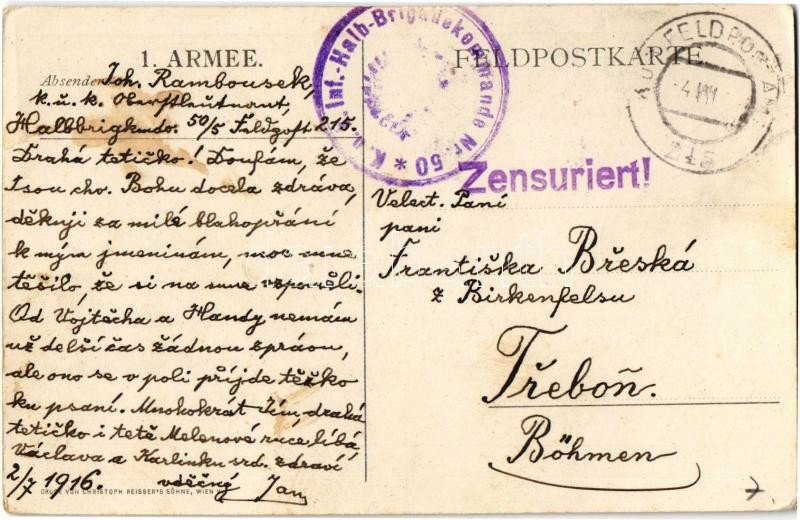 1. ARMEE.
FELDPOSTKARTE
Absender:
Joh. Rambousek,
k.u.k. Oberstleutnant,
Halbbrigkmdo. 50/5 Feldpost 215.
Drahá tetičko! Doufám, že
Jsou chv. Bohu docela zdráva,
děkuji za milé blahopřání
k mým jmeninám, moc mne
těšilo, že si na mne vzpomněli.
Od Vojtěcha a Handy nemám
už delší čas žádnou zprávu,
ale ono se v poli přijde těžko
ku psaní. Mnohokrát Jim, drahá
tetičko i tetě Melenové ruce líbá
Václava a Karlinku srd. zdraví
2/7 1916. vděčný Jan
DRUCK VON CHRISTOPH REISSER'S SÖHNE, WIEN V.
K. u. k. Inf.-Halb-Brigadekommando Nr. 50 *
K.u.K. FELDPOSTAMT
215
Zensuriert!
Velect. Paní
paní
Františka Břeská
z Birkenfelsu
Třeboň.
Böhmen